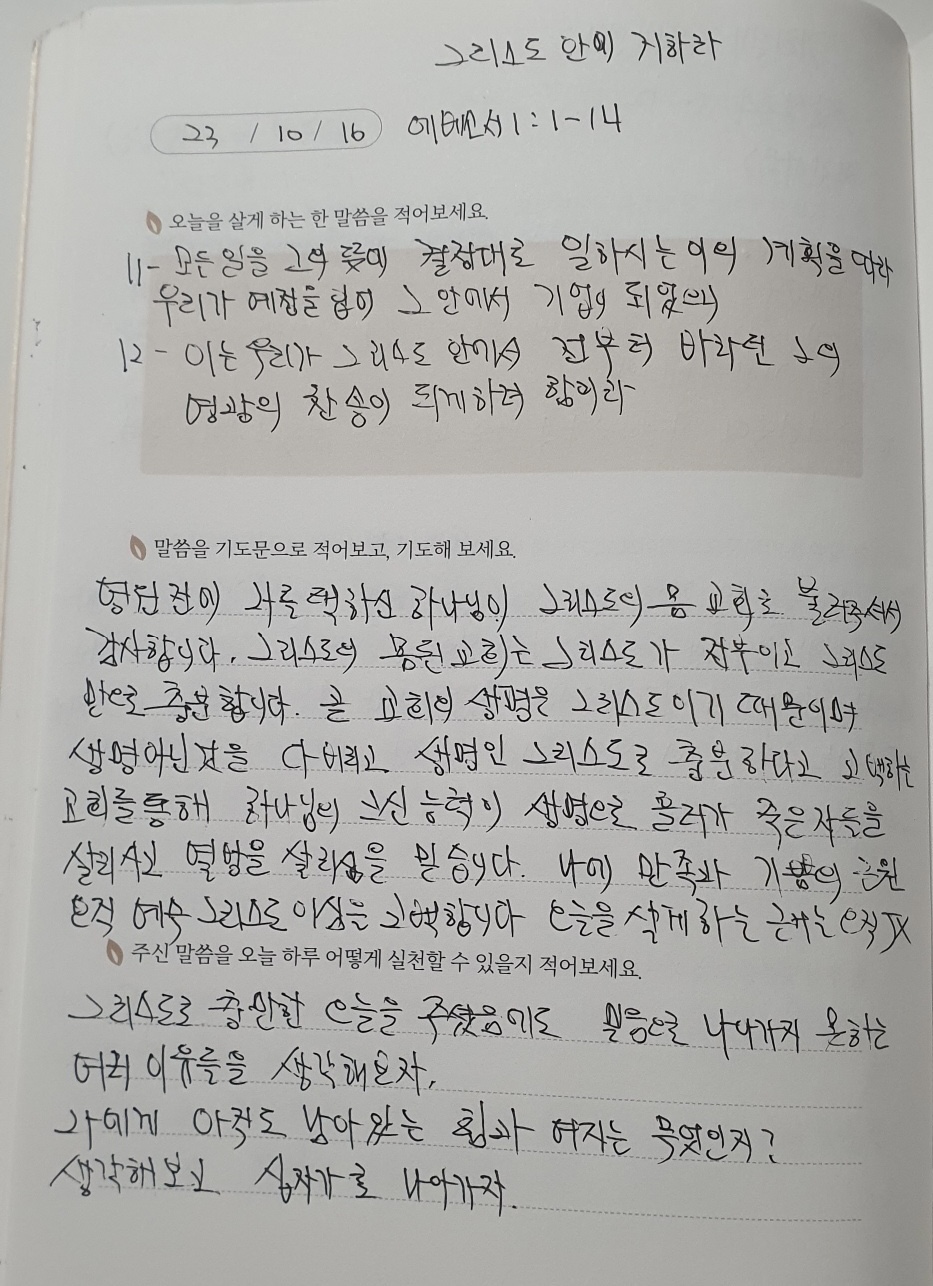 그리스도 안에 거하라
23 / 10 / 16 에베소서 1 : 1 - 14
오늘을 살게 하는 한 말씀을 적어보세요.
11 - 모든 일을 그의 뜻의 결정대로 일하시는 이의 계획을 따라
우리가 예정을 입어 그 안에서 기업이 되었으니
12 - 이는 우리가 그리스도 안에서 전부터 바라던 그의
영광의 찬송이 되게 하려 함이라
말씀을 기도문으로 적어보고, 기도해 보세요.
창세 전에 나를 택하신 하나님이 그리스도의 몸 교회로 불러주셔서
감사합니다. 그리스도의 몸된 교회는 그리스도가 전부이고 그리스도
만으로 충분합니다. 곧 교회의 생명은 그리스도이기 때문이며
생명 아닌 것을 다 버리고 생명인 그리스도로 충분하다고 고백하는
교회를 통해 하나님의 크신 능력이 생명으로 흘러가 죽은 자들을
살리시고 열방을 살리심을 믿습니다. 나의 만족과 기쁨의 근원
오직 예수 그리스도이심을 고백합니다 오늘을 살게 하는 근거는 오직 JX
주신 말씀을 오늘 하루 어떻게 실천할 수 있을지 적어보세요.
그리스도로 충만한 오늘을 주셨음에도 믿음으로 나아가지 못하는
여러 이유들을 생각해보자.
나에게 아직도 남아있는 힘과 여지는 무엇인지?
생각해보고 십자가로 나아가자.